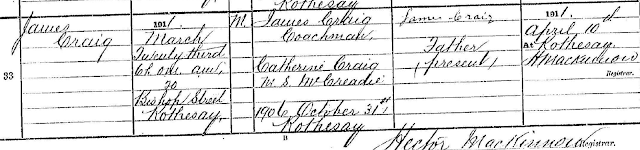 Rothesay Rothesay
James Craig
33
1911.
March
Twenty third
6h. 0m. a.m.
30
Bishop Street
Rothesay
M.
James Craig
Coachman
Catherine Craig
M.S. McCreadie
1906 October 31st
Rothesay
James Craig
Father
(present)
1911.
April 10th
At Rothesay
H. MacKinnon
Registrar.
Hector MacKinnon
Registrar.
B